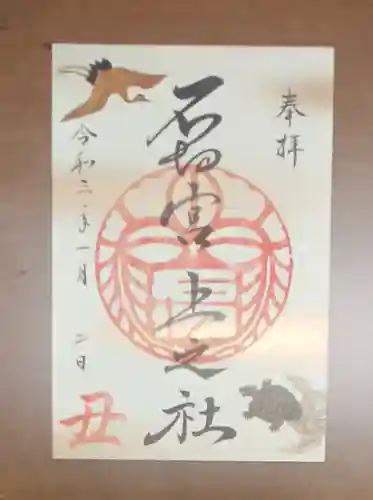 奉拝
石切宮上之社
令和三年一月二日
丑